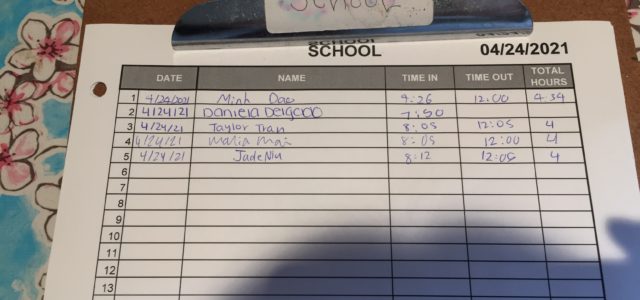 School
SCHOOL 04/24/2021
DATE NAME TIME IN TIME OUT TOTAL HOURS
1 4/24/2021 Minh Dao 12:00 4.34
2 4/24/21 Daniela Delgado 7:50
3 4/24/21 Taylor Tran 8:05 12:05 4
4 4/24/21 Malia Mai 8:05 12:00 4
5 4/24/21 Jade Niu 8:12 12:05 4
6
7
8
9
10
11
12
13